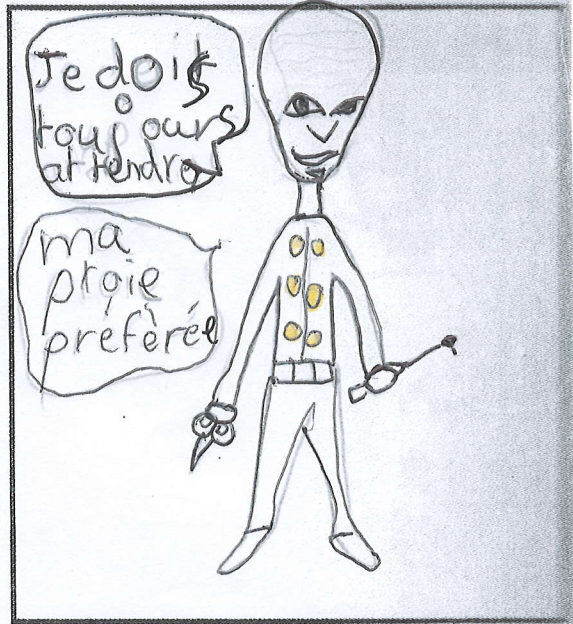 Je dois
toujours
attendre
ma
proie
préférée